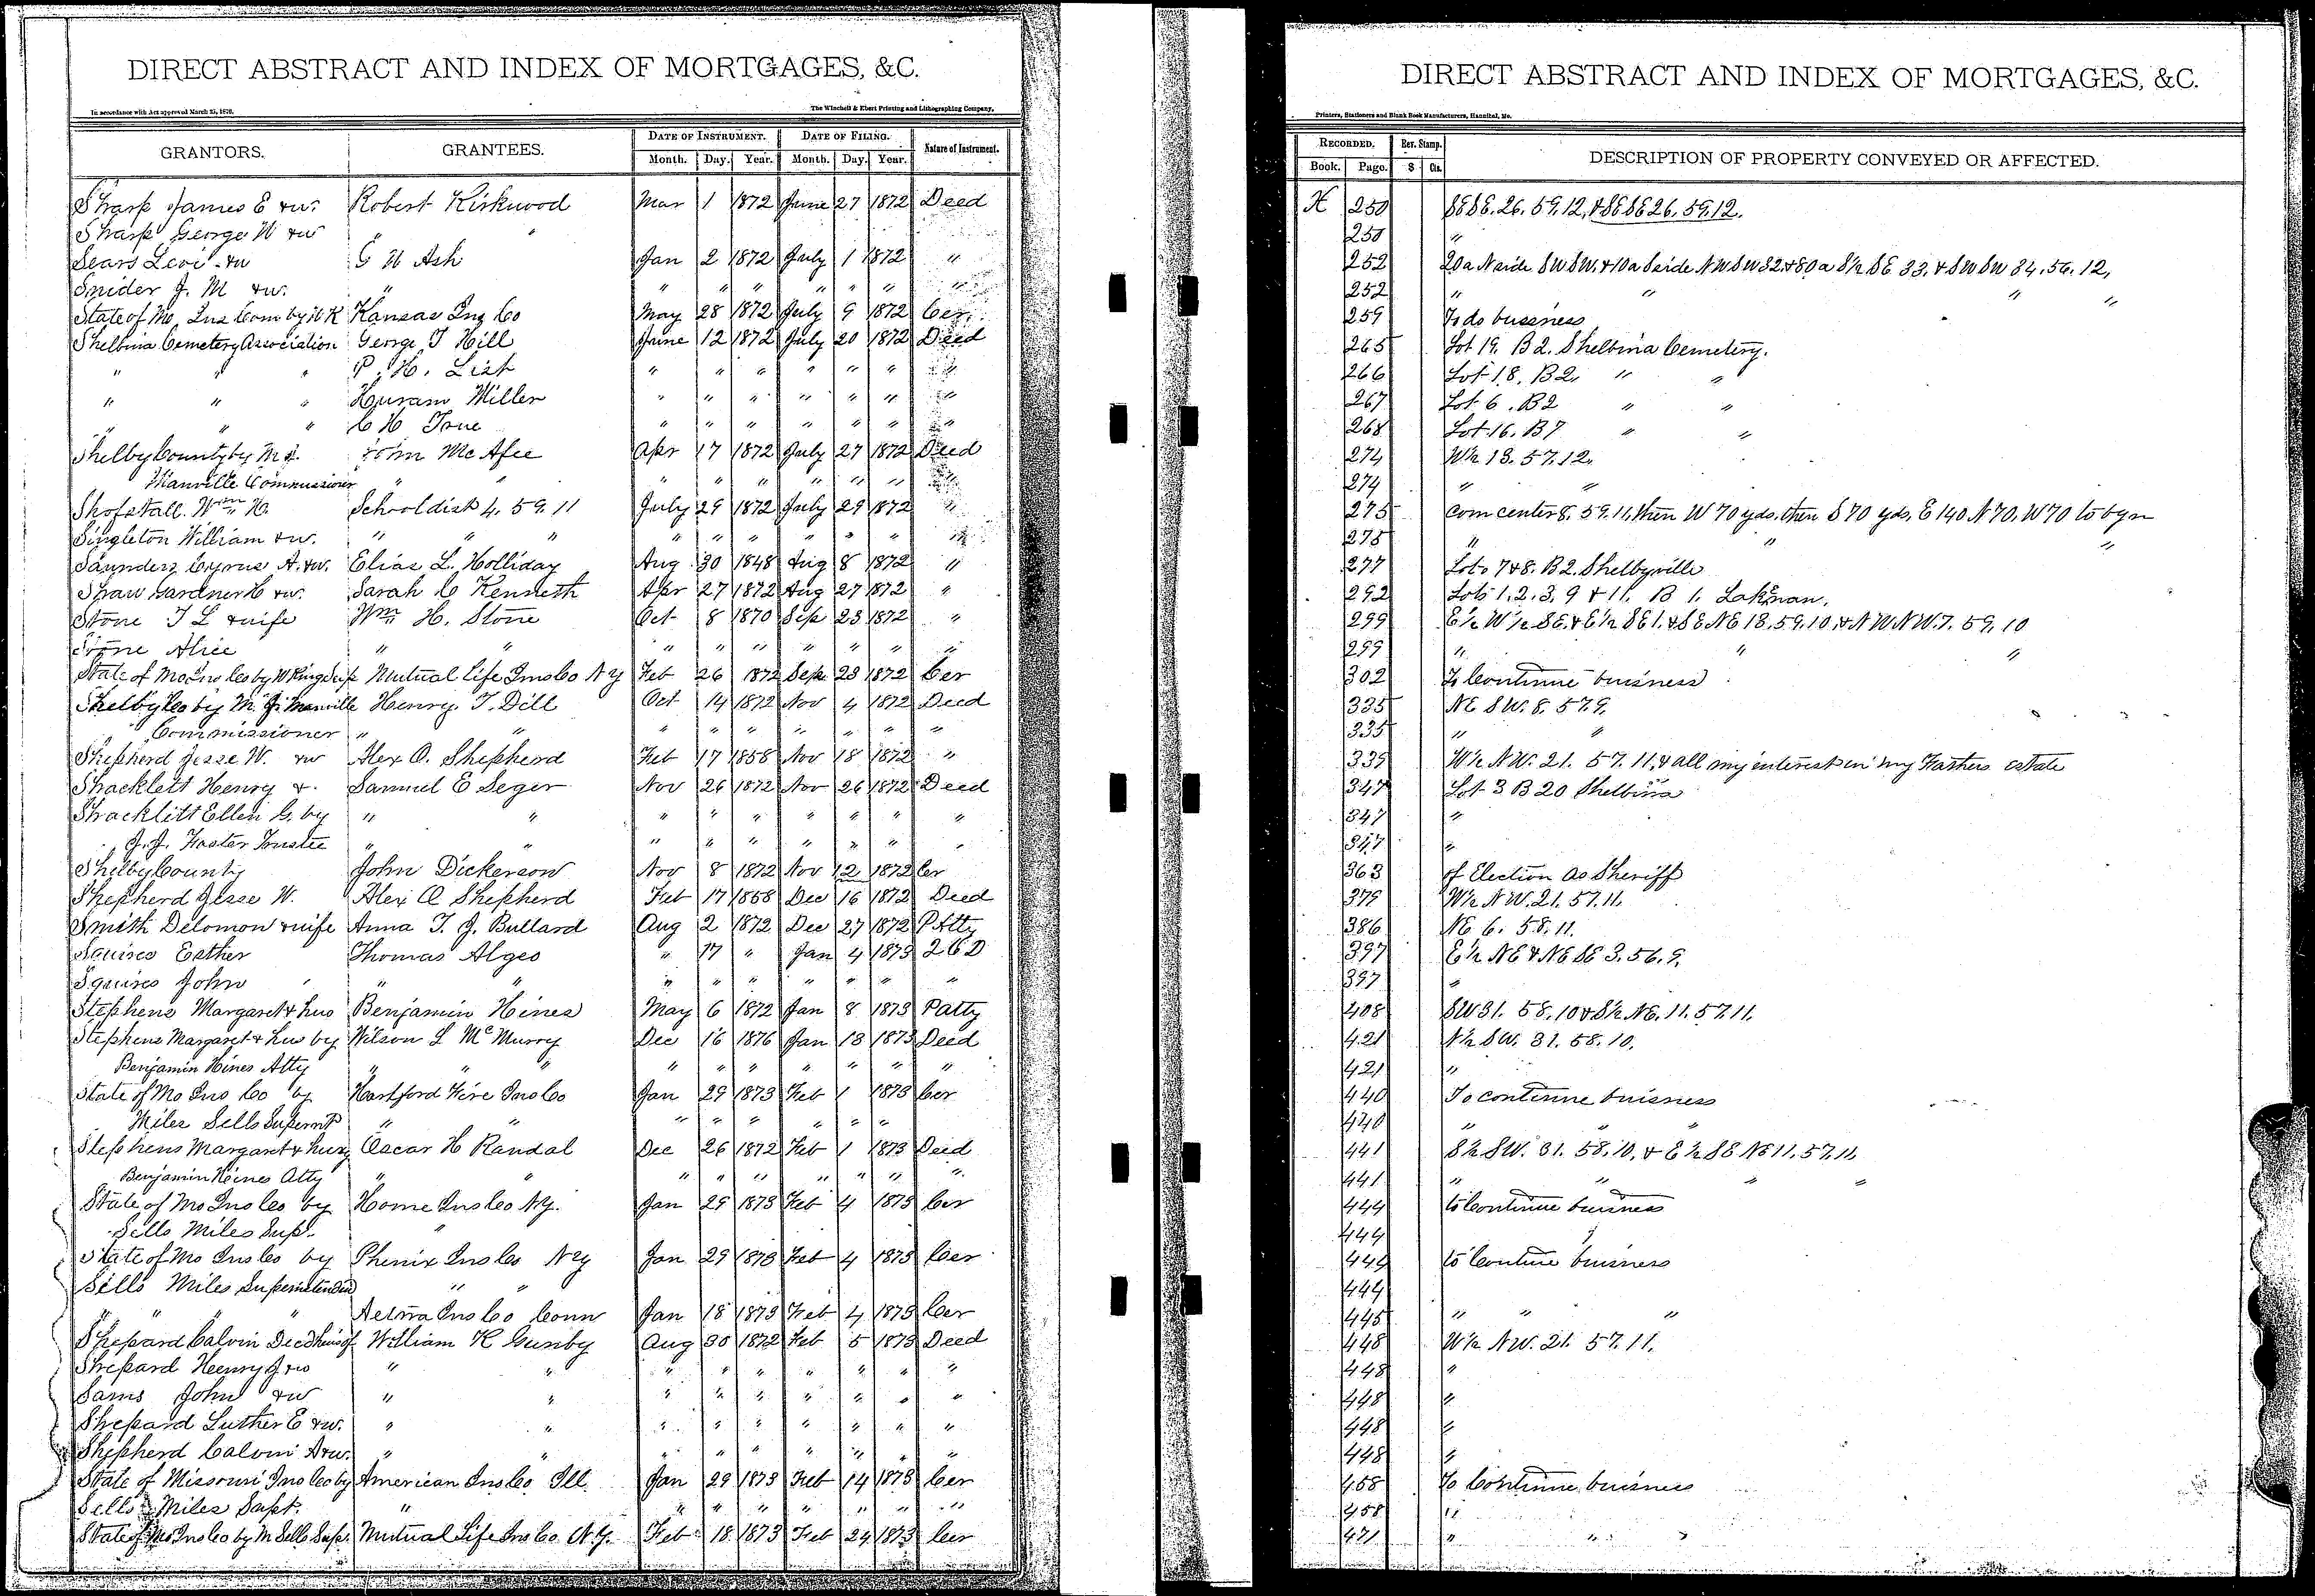 DIRECT ABSTRACT AND INDEX OF MORTGAGES, &C.
In accordance with Act approved March 25, 1870. The Winchell & Ebert Printing and Lithographing Company,
GRANTORS. GRANTEES. DATE OF INSTRUMENT. DATE OF FILING. Nature of Instrument.
Month. Day. Year. Month. Day. Year.
Sharp James E &w. Robert Kirkwood Mar 1 1872 June 27 1872 Deed
Sharp George W &w " "
Sears Levi &w Ash Jan 2 1872 July 1 1872 "
Snider J. M &w. " " " " " " " "
State of Mo Ins Com by W K Kansas Ins Co May 28 1872 July 9 1872 Cer.
Shelbina Cemetery Association George T Hill June 12 1872 July 20 1872 Deed
" " " P. H. List " " " " " " "
" " " Hiram Miller " " " " " " "
" " " C H " " " " " " "
Shelby County by M J. John Mc Afee Apr 17 1872 July 27 1872 Deed
Manville Commissioner " " " " " " " "
Shofstall. Wm H. School dist 4. 59. 11 July 29 1872 July 29 1872 "
Singleton William &w. " " " " " " " " " "
Saunders Cyrus A. &w. Elias L. Holliday Aug 30 1848 Aug 8 1872 "
Shaw Gardner H &w. Sarah C Kenneth Apr 27 1872 Aug 27 1872 "
Stone T L & wife Wm H. Stone Oct 8 1870 Sep 23 1872 "
Stone Alice " " " " " " " " "
State of Mo Ins Co by W King Sup Mutual Life Ins Co N Y Feb 26 1872 Sep 23 1872 Cer
Shelby Co by M. J. Manville Henry T. Dill Oct 14 1872 Nov 4 1872 Deed
" Commissioner " " " " " " " " "
Shepherd Jesse W. &w Alex O. Shepherd Feb 17 1858 Nov 18 1872 "
Shacklett Henry &. Samuel E Seger Nov 26 1872 Nov 26 1872 Deed
Shacklitt Ellen G. by " " " " " " " " "
J. J. Foster Trustee " " " " " " " " "
Shelby County John Dickerson Nov 8 1872 Nov 12 1872 Cer
Shepherd Jesse W. Alex O Shepherd Feb 17 1858 Dec 16 1872 Deed
Smith Delomon & wife Anna T. J. Bullard Aug 2 1872 Dec 27 1872 P Atty
Squires Esther Thomas Algeo " 17 " Jan 4 1873 2 C D
Squires John " " " " " " " " "
Stephens Margaret & hus Benjamin Hines May 6 1872 Jan 8 1873 P atty
Stephens Margaret & hus by Wilson L McMurry Dec 16 1876 Jan 13 1873 Deed
Benjamin Hines Atty " " " " " " " " " "
State of Mo Ins Co by Hartford Fire Ins Co Jan 29 1873 Feb 1 1873 Cer
Miles Sells Supernt " " " " " " " "
Stephens Margaret & hus by Oscar H Randal Dec 26 1872 Feb 1 1873 Deed
Benjamin Hines Atty " " " " " " " " "
State of Mo Ins Co by Home Ins Co N.Y. Jan 29 1873 Feb 4 1873 Cer
Sells Miles Sup. "
State of Mo Ins Co by Phenix Ins Co N Y Jan 29 1873 Feb 4 1873 Cer
Sells Miles Superintendend " "
" " " Aetna Ins Co Conn Jan 18 1873 Feb 4 1873 Cer
Shepard Calvin Decd heirs of William K Gunby Aug 30 1872 Feb 5 1873 Deed
Shepard Henry J &w " " " " " " " " "
Sams John &w " " " " " " " " "
Shepard Luther E &w. " " " " " " " " "
Shepherd Calvin A &w. " " " " " " " " "
State of Missouri Ins Co by American Ins Co Ill Jan 29 1873 Feb 14 1873 Cer
Sells Miles Supt. " " " " " " " "
State of Mo Ins Co by M Sells Sup. Mutual Life Ins Co N.Y. Feb 18 1873 Feb 24 1873 Cer
DIRECT ABSTRACT AND INDEX OF MORTGAGES, &C.
Printers, Stationers and Blank Book Manufacturers, Hannibal, Mo.
RECORDED. Rev. Stamp. DESCRIPTION OF PROPERTY CONVEYED OR AFFECTED.
Book. Page. $ Cts.
H 250 SESE. 26. 59. 12, & SESE 26. 59. 12.
250 "
252 20a N side SWSW. & 10a S side NWSW 32. & 80a S½ SE 33. & SWSW 34. 56. 12,
252 " " " "
259 To do business
265 Lot 19. B 2. Shelbina Cemetery.
266 Lot 18. B 2. " "
267 Lot 6. B 2 " "
268 Lot 16. B 7 " "
274 W½ 13. 57. 12.
274 " "
275 Com center 8. 59. 11, then W 70 yds. then S 70 yds, E 140 N 70. W 70 to bgn
275 " " "
277 Lots 7 & 8. B 2. Shelbyville
292 Lots 1. 2. 3. 9 & 11. B 1. Lakenan.
299 E½ W½ SE. & E½ SE 1. & SE NE 18. 59. 10, & NWNW. 7. 59. 10
299 " " "
302 To Continue buisness
335 NE SW. 8. 57. 9.
335 " "
339 W½ NW. 21. 57. 11, & all my interest in my Fathers estate
347 Lot 3 B 20 Shelbina
347 "
347 "
363 of Election as Sheriff
379 W½ NW. 21. 57. 11.
386 NE 6. 58. 11.
397 E½ NE & NE SE 3. 56. 9.
397 "
408 SW 31. 58. 10 & S½ NE. 11. 57. 11.
421 N½ SW. 31. 58. 10.
421 "
440 To continue buisness
440 " "
441 S½ SW. 31. 58. 10, & E½ SE NE 11. 57. 11
441 " " " "
444 to Continue buisness
444 "
444 to Continue buisness
444
445 " " "
448 W½ NW. 21. 57. 11.
448 "
448 "
448 "
448 "
458 To Continue buisness
458 "
471 " " "